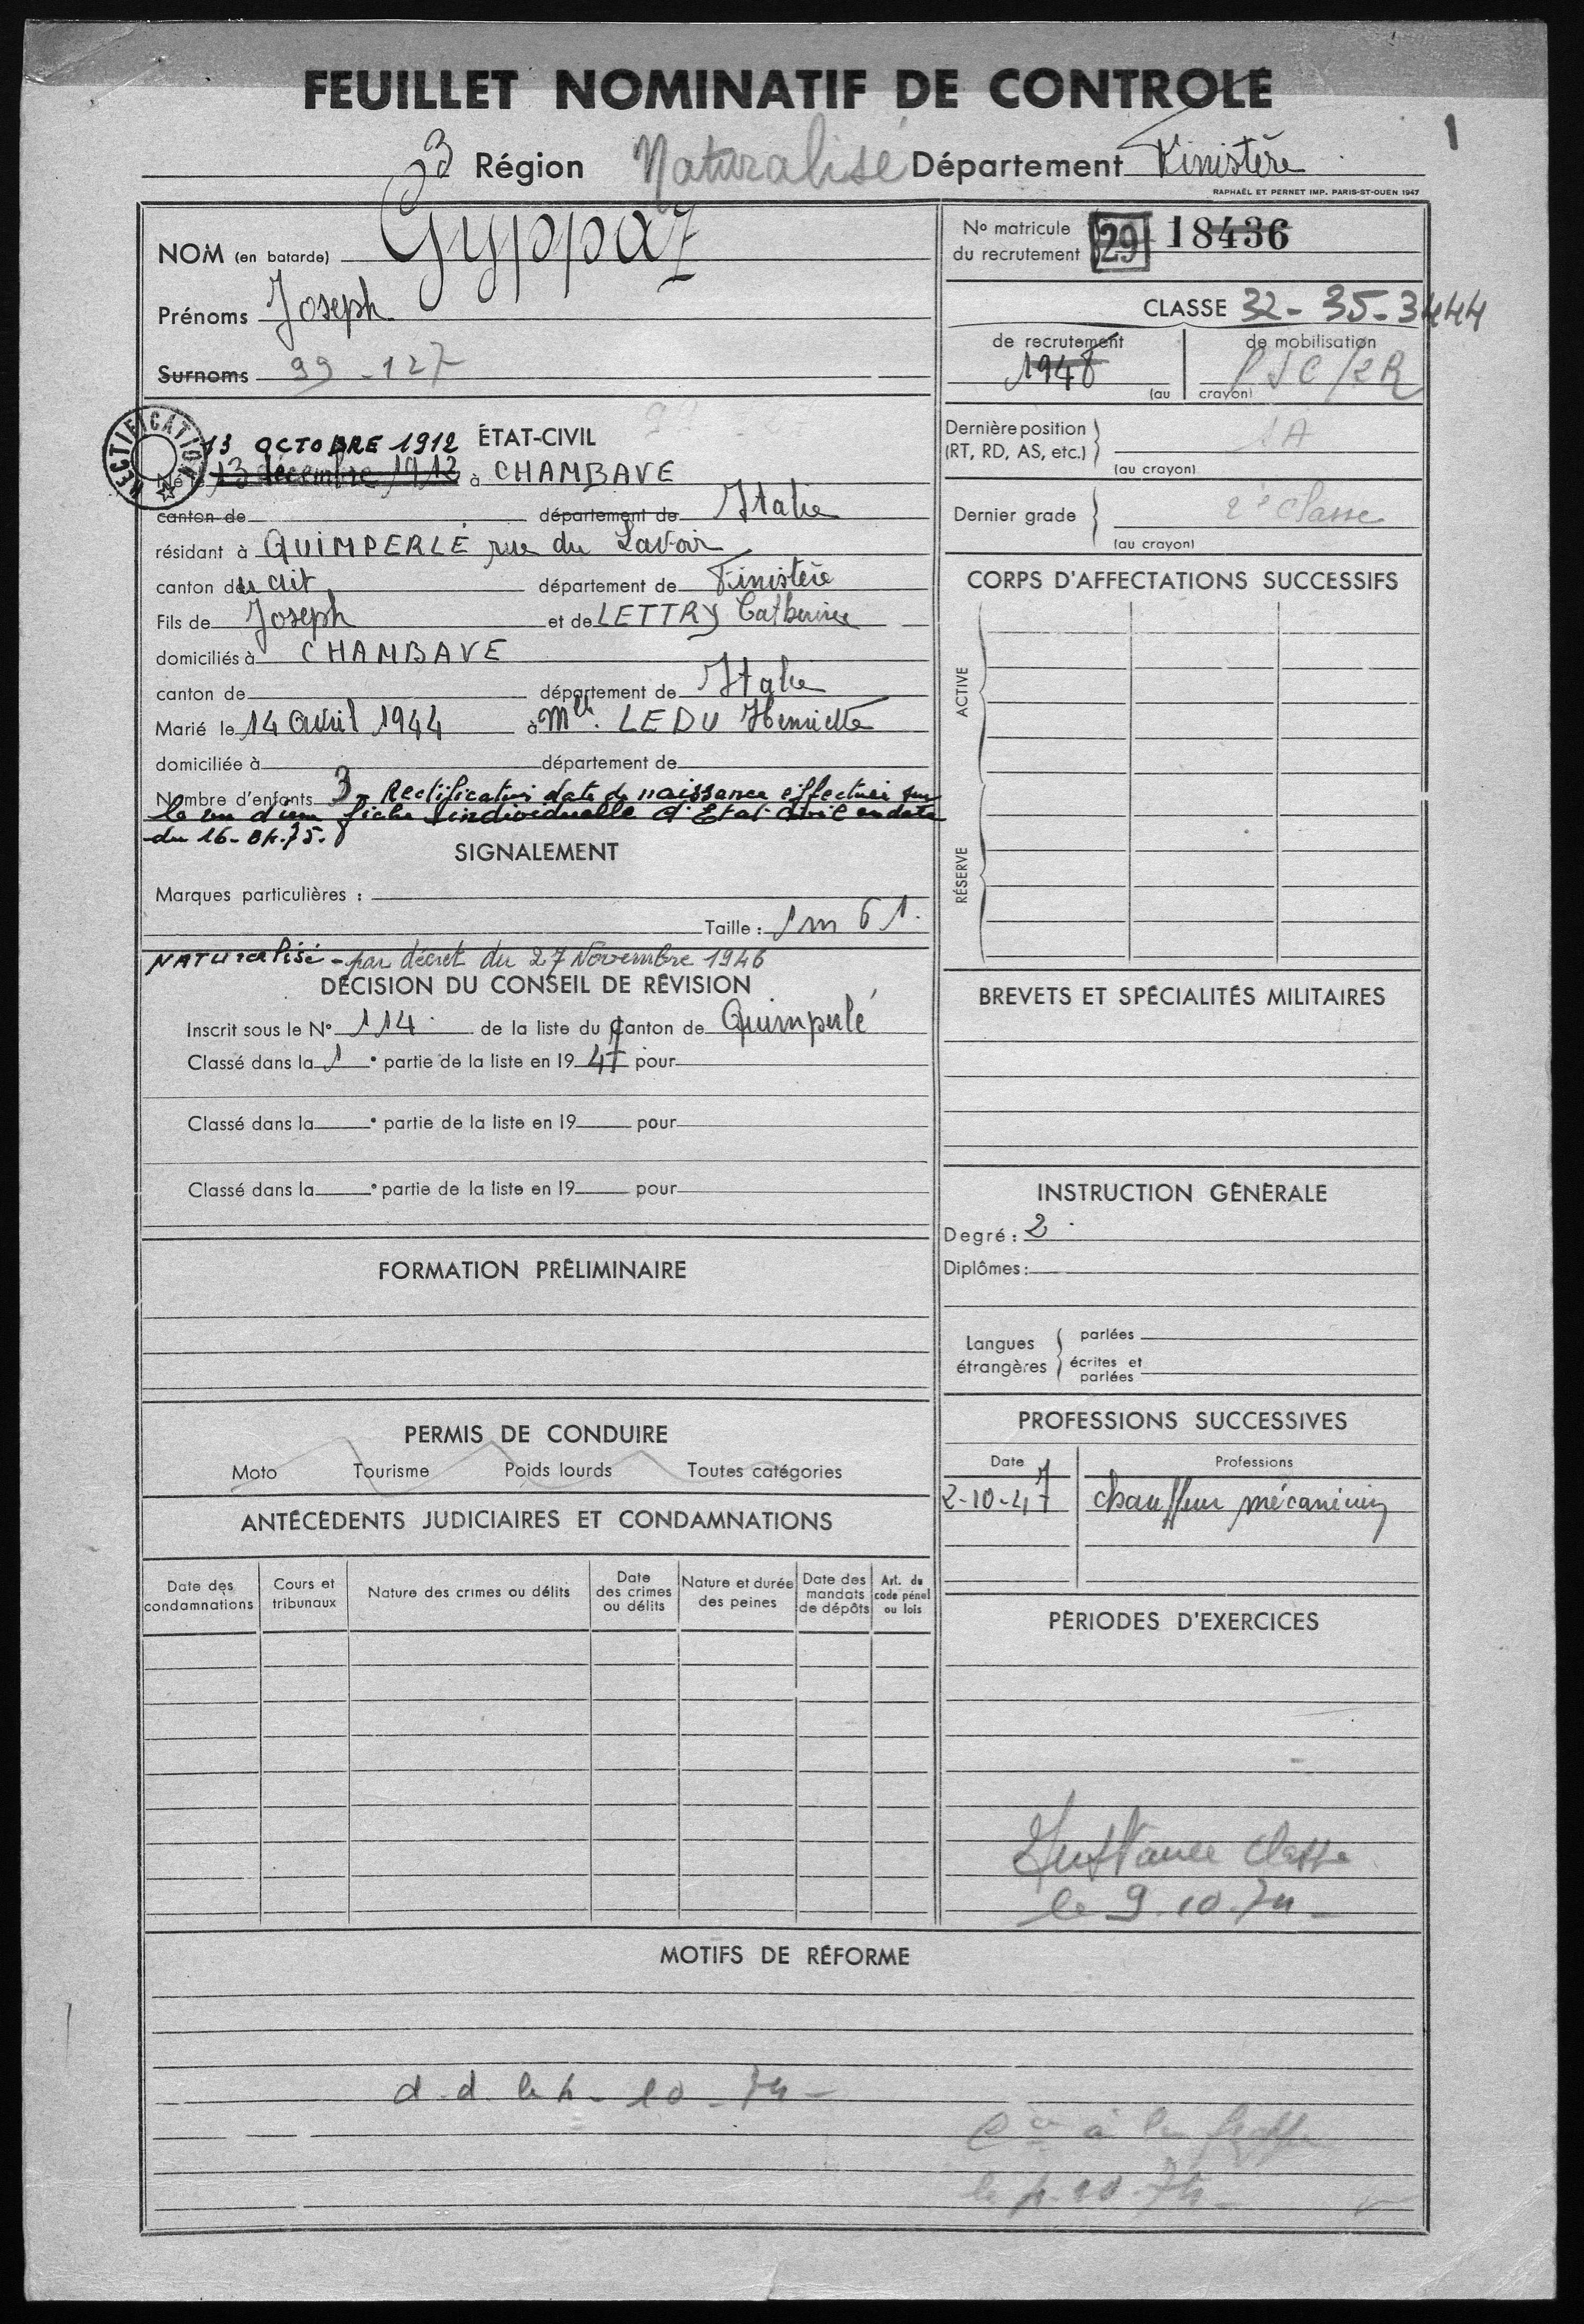 FEUILLET NOMINATIF DE CONTROLE
1
3 Région Naturalisé Département Finistère
RAPHAËL ET PERNET IMP. PARIS-ST-OUEN 1947
NOM (en batarde) Gyppaz
Prénoms Joseph
Surnoms 99-127
RECTIFICATION
13 OCTOBRE 1912 ÉTAT-CIVIL
Né le 13 décembre 1912 à CHAMBAVE
canton de département de Italie
résidant à QUIMPERLÉ rue du Lavoir
canton du dit département de Finistère
Fils de Joseph et de LETTRY Catherine
domiciliés à CHAMBAVE
canton de département de Italie
Marié le 14 Avril 1944 à Mlle. LE DU Henriette
domiciliée à département de
Nombre d'enfants 3 - Rectification date de naissance effectuée sur
le vu d'une fiche individuelle d'Etat Civil en date
du 16-04-75.
SIGNALEMENT
Marques particulières :
Taille : 1m 61.
NATUralisé - par décret du 27 Novembre 1946
DÉCISION DU CONSEIL DE RÉVISION
Inscrit sous le N° 114 de la liste du Canton de Quimperlé
Classé dans la 1 ° partie de la liste en 19 47 pour
Classé dans la ° partie de la liste en 19 pour
Classé dans la ° partie de la liste en 19 pour
FORMATION PRÉLIMINAIRE
PERMIS DE CONDUIRE
Moto Tourisme Poids lourds Toutes catégories
ANTÉCÉDENTS JUDICIAIRES ET CONDAMNATIONS
Date des condamnations Cours et tribunaux Nature des crimes ou délits Date des crimes ou délits Nature et durée des peines Date des mandats de dépôts Art. du code pénal ou lois
N° matricule
du recrutement 29 18436
CLASSE 32 - 35 - 3444
de recrutement de mobilisation
1948 PSC/2R
(au crayon)
Dernière position
(RT, RD, AS, etc.) 1A
(au crayon)
Dernier grade 2e classe
(au crayon)
CORPS D'AFFECTATIONS SUCCESSIFS
ACTIVE
RÉSERVE
BREVETS ET SPÉCIALITÉS MILITAIRES
INSTRUCTION GÉNÉRALE
Degré : 2
Diplômes :
Langues étrangères
parlées
écrites et parlées
PROFESSIONS SUCCESSIVES
Date Professions
2-10-47 chauffeur mécanicien
PÉRIODES D'EXERCICES
le 9.10.74
MOTIFS DE RÉFORME
d.d. le 4-10-74-
à la
le 4.10.74-